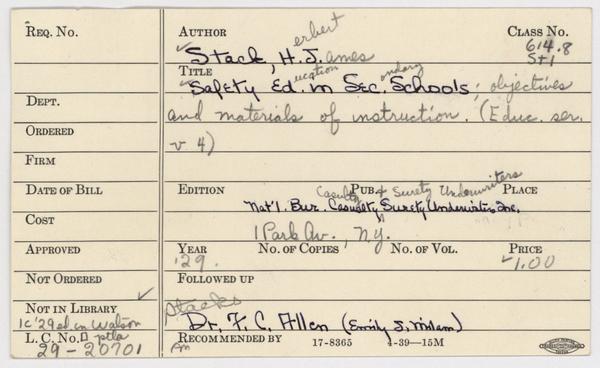 REQ. NO.
DEPT.
ORDERED
FIRM
DATE OF BILL
COST
APPROVED
NOT ORDERED
NOT IN LIBRARY ✓
1c '29 ed. in Watson
L. C. NO. ptla
29-20701
AUTHOR
CLASS NO.
614.8
St1
✓ Stack, Herbert James
TITLE
✓ Safety Education in Secondary Schools; objectives
and materials of instruction. (Educ. ser.
v 4)
EDITION PUB. PLACE
Casualty & Surety Underwriters
Nat'l. Bur. Casualty Surety Underwriters Inc.
1 Park Av., N.Y.
YEAR NO. OF COPIES NO. OF VOL. PRICE
'29. ✓ 1.00
FOLLOWED UP
Stacks
Dr. F. C. Allen (Emily J. Milam)
RECOMMENDED BY 17-8365 4-39-15M
Am